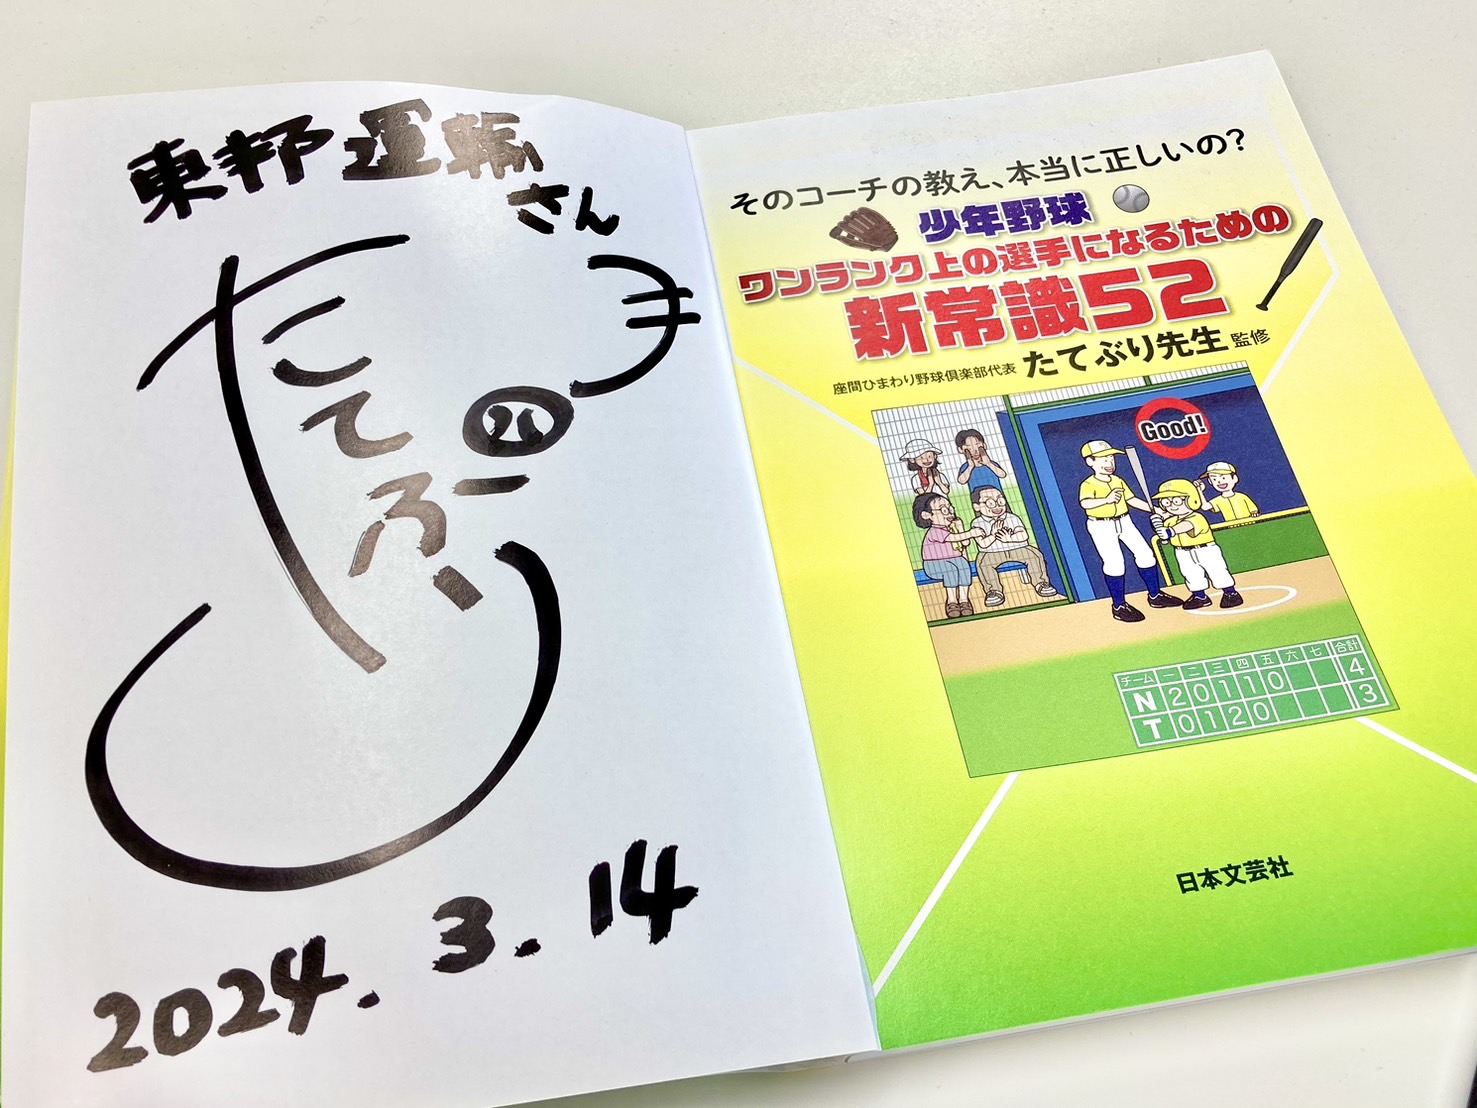 東邦運輸
さん
たてぶり
2024.3.14
そのコーチの教え、本当に正しいの?
少年野球
ワンランク上の選手になるための
新常識52
座間ひまわり野球倶楽部代表 たてぶり先生 監修
Good!
チーム 一 二 三 四 五 六 七 合計
N 2 0 1 1 0 4
T 0 1 2 0 3
日本文芸社